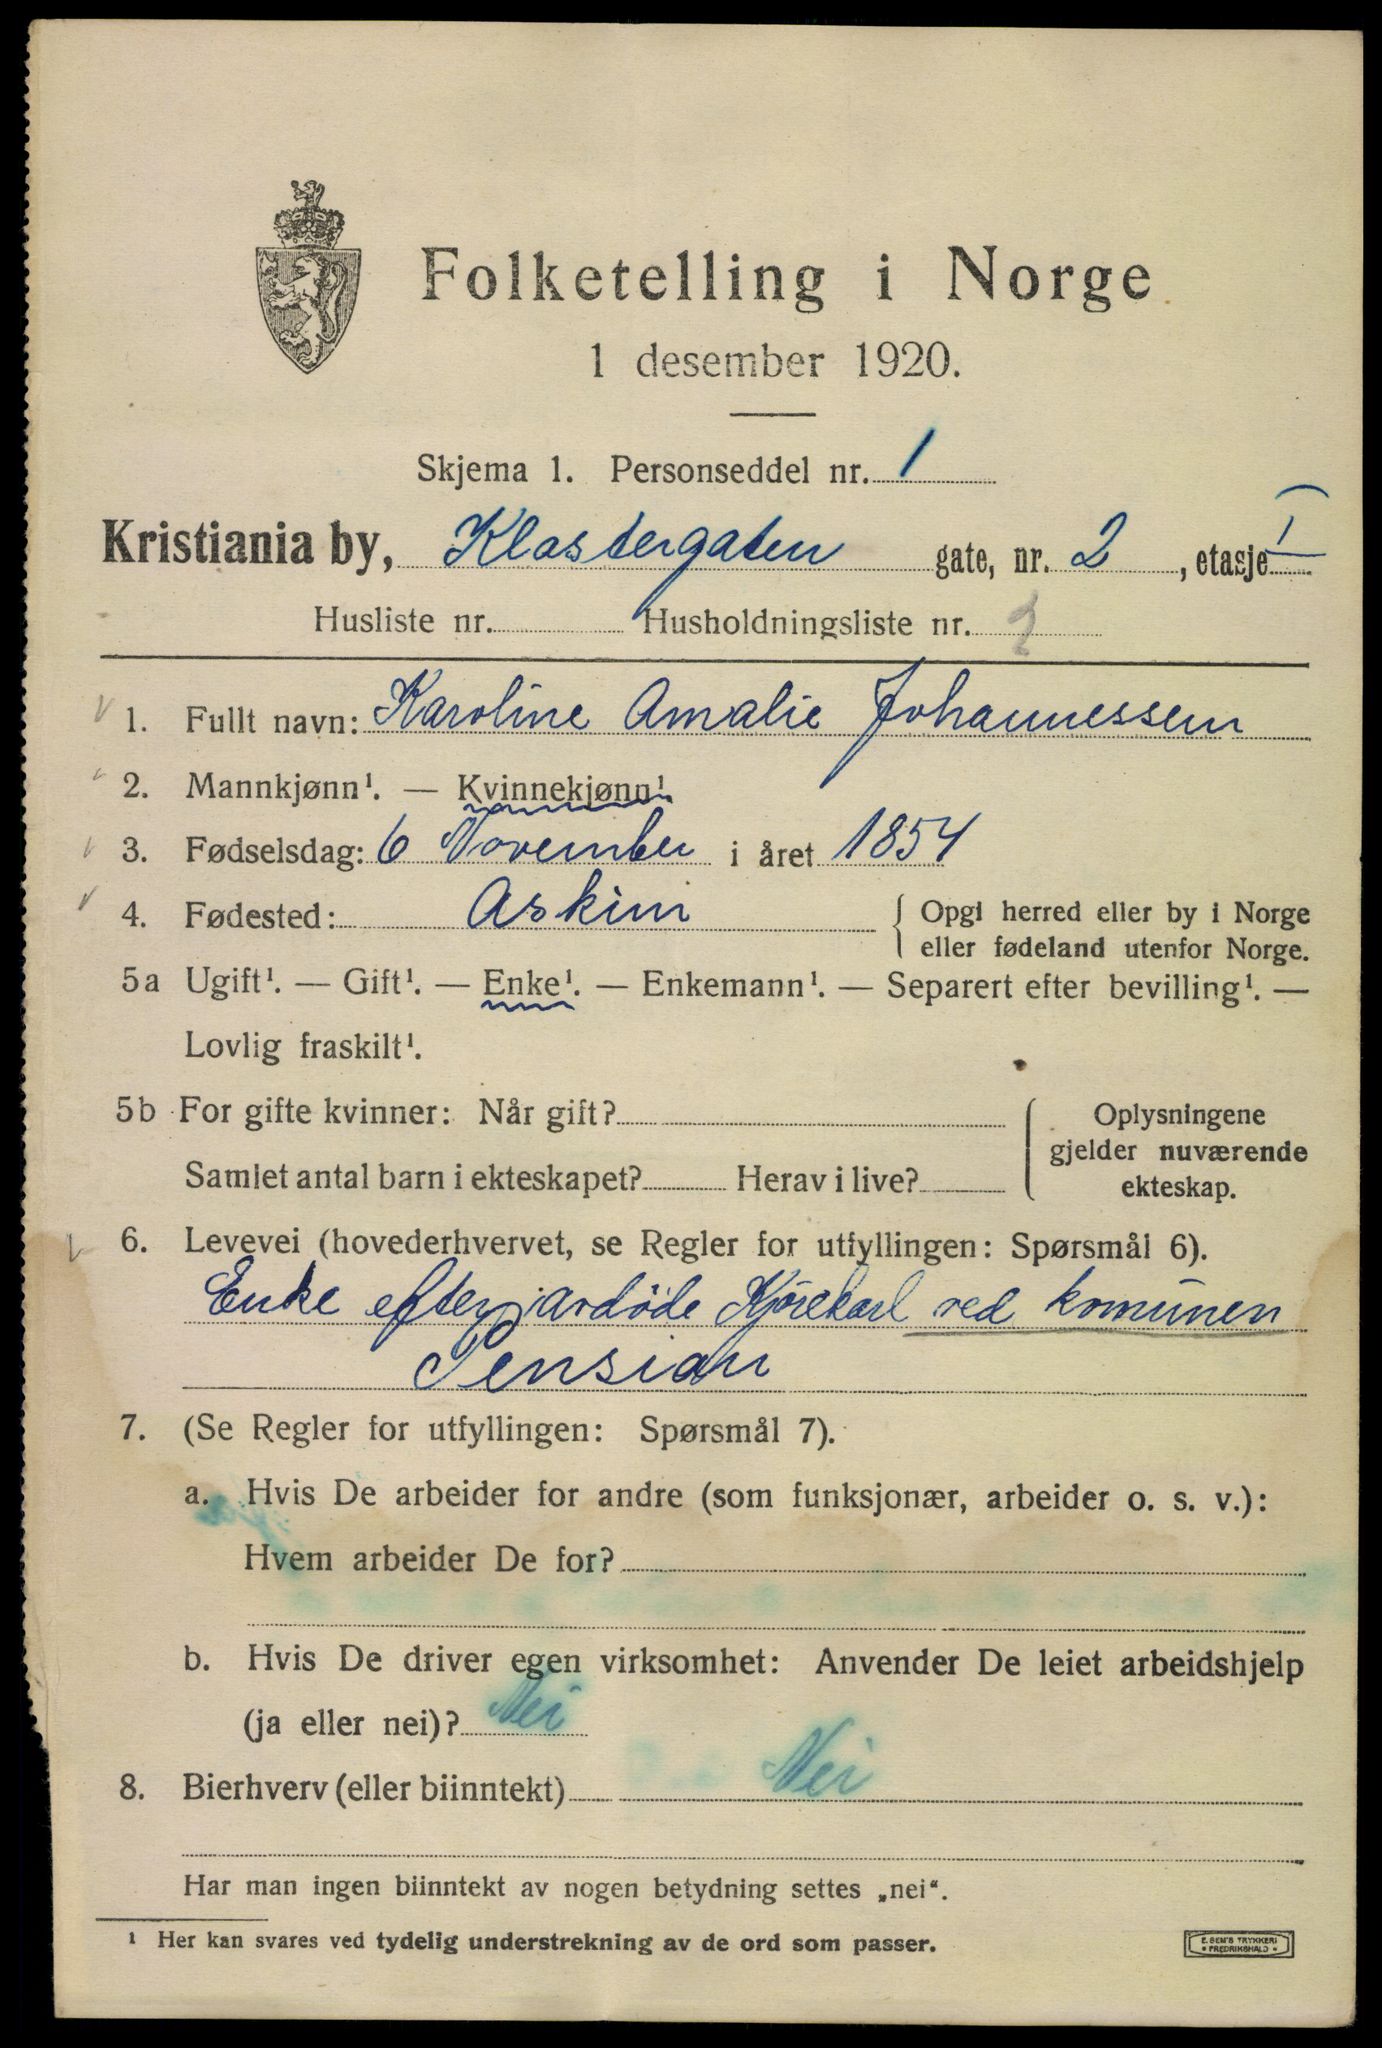 Folketelling i Norge
1 desember 1920.
Skjema 1. Personseddel nr. 1
Kristiania by, Klostergaten gate, nr. 2, etasje I
Husliste nr. Husholdningsliste nr. 2
1. Fullt navn: Karoline Amalie Johannessen
2. Mannkjønn¹. — Kvinnekjønn¹.
3. Fødselsdag: 6 November i året 1854
4. Fødested: Askim { Opgi herred eller by i Norge
eller fødeland utenfor Norge.
5a Ugift¹. — Gift¹. — Enke¹. — Enkemann¹. — Separert efter bevilling¹. —
Lovlig fraskilt¹.
5b For gifte kvinner: Når gift?
Samlet antal barn i ekteskapet? Herav i live?
Oplysningene
gjelder nuværende
ekteskap.
6. Levevei (hovederhvervet, se Regler for utfyllingen: Spørsmål 6).
Enke efter Kjørekarl ved komunen
Pension
7. (Se Regler for utfyllingen: Spørsmål 7).
a. Hvis De arbeider for andre (som funksjonær, arbeider o. s. v.):
Hvem arbeider De for?
b. Hvis De driver egen virksomhet: Anvender De leiet arbeidshjelp
(ja eller nei)? Nei
8. Bierhverv (eller biinntekt) Nei
Har man ingen biinntekt av nogen betydning settes „nei“.
¹ Her kan svares ved tydelig understrekning av de ord som passer.
E. SEM'S TRYKKERI
• FREDRIKSHALD •